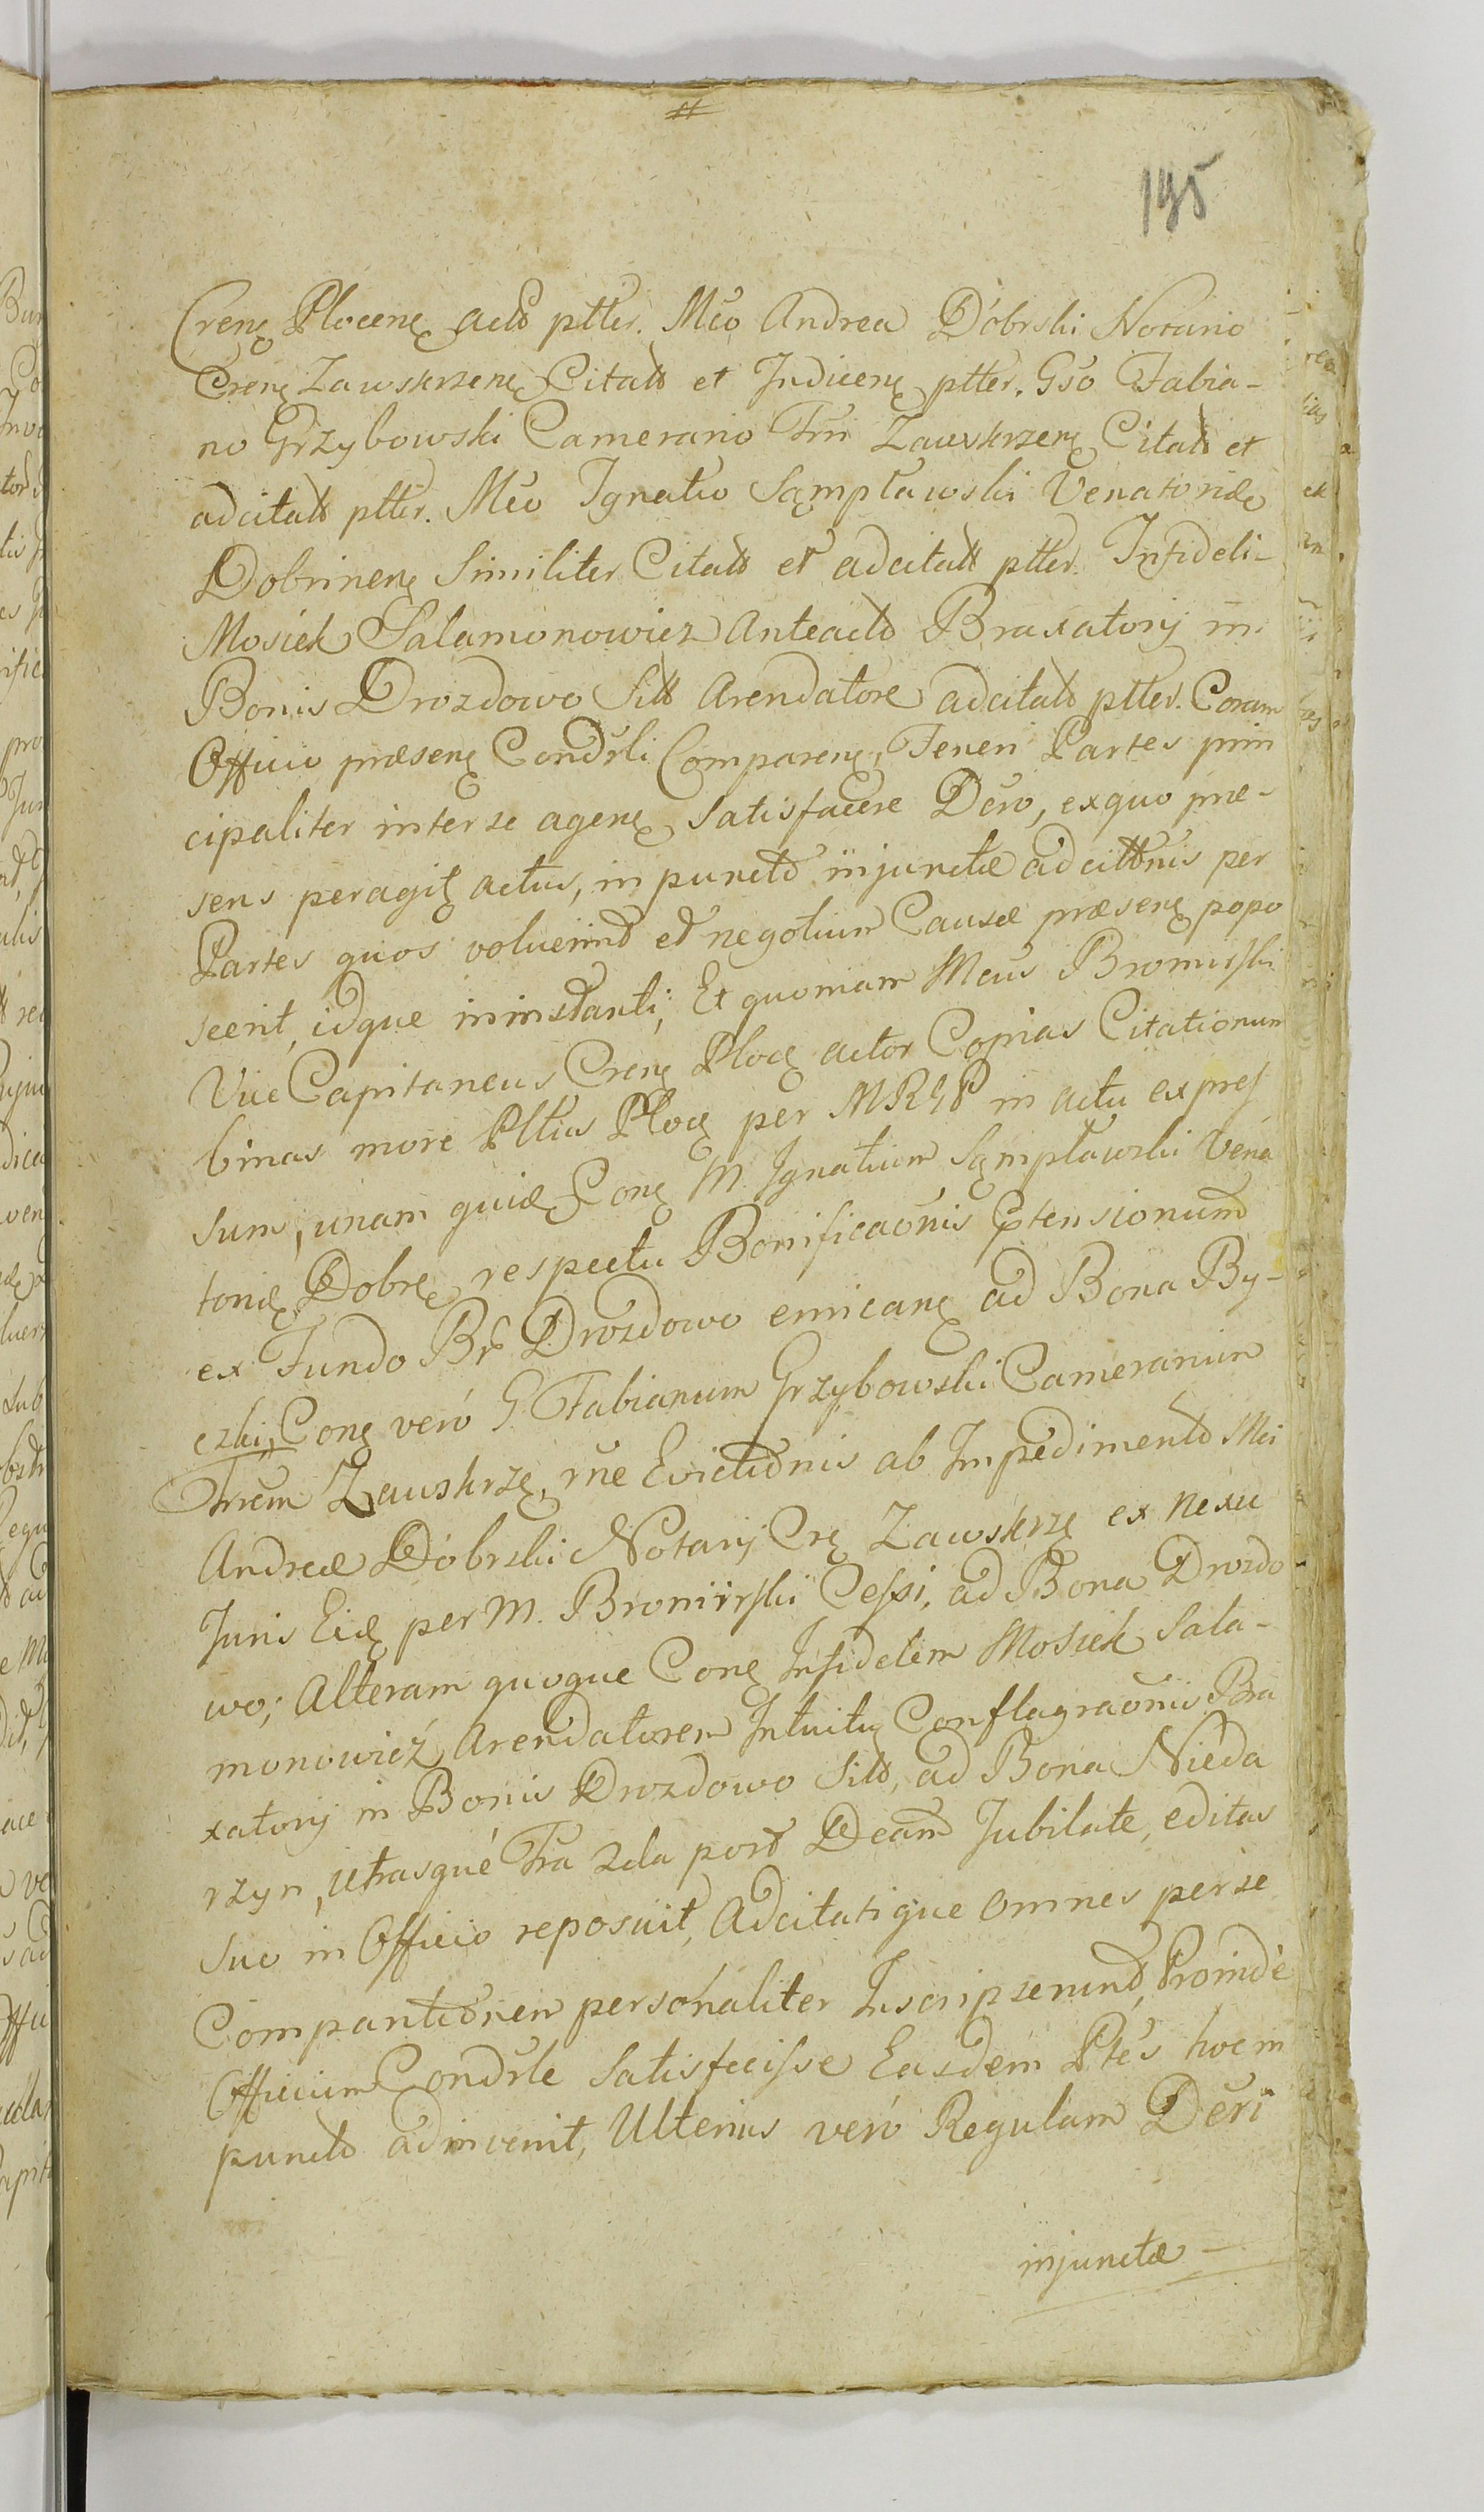 195
Crenę Plocenę actō ptter. Mco Andrea Dobrski Notario
Crenę Zawskrzenę Citatō et Indicenę ptter. Gso Fabia-
no Grzybowski Camerario Trri Zawskrzenę Citatō et
adcitatō ptter. Mco Ignatio Sąmpławski Venatoridę
Dobrinenę Similiter Citatō et adcitatō ptter. Infideli-
Mosiek Salamonowicz Anteactō Braxatorij in
Bonis Drozdowo Sitō Arendatore adcitatō ptter. Coram
Officio præsenę Condrli Comparenę, Teneri Partes prin
cipaliter inter se agenę Satisfacere Dčro, exquo præ-
sens peragitę actus, in punctō injunctæ adcittōnis per
Partes quos voluerint et negotium Causæ præsenę popo
scerit, idque in instanti; Et quoniam Mcus Bromirski
Vice Capitaneus Crenę Plocę actor Copias Citationum
binas more Pltius Plocę per MRGP in actu expres
sum, unam quidę Conę M. Ignatium Sąmpławski Vena
toridę Dobrę respectu Bonificaōnis Ptensionum
ex Fundo Br Drozdowo emicanę ad Bona By-
czki, Conę verò G. Fabianum Grzybowski Camerarium
Trrem Zawskrzę, rne Evictiōnis ab Impedimentō Mci
Andreæ Dobrski Notarij Crę Zawskrzę ex nexu
Juris Eidę per M. Bromirski Cessi, ad Bona Drozdo
wo; Alteram quoque Conę Infidelem Mosiek Sala-
monowicź Arendatorem Intuitu Conflagraōnis Bra
xatorij in Bonis Drozdowo Sitō, ad Bona Niéda
rzyn, utrasque Fra 2da post Dcam Jubilate, editas
suo in Officio reposuit, Adcitatique omnes per se
Comparitiōnem personaliter Inscripserunt, Proindè
Officium Condrle Satisfecisse Easdem Ptes hoc in
punctō adinvenit, Ulterius verò Regulam Dčri
injunctæ